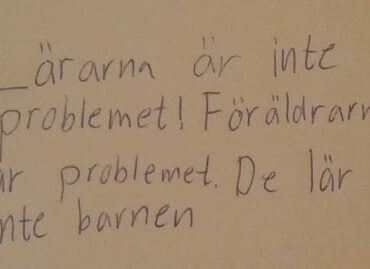 _ärarna är inte
problemet! Föräldrarn
är problemet. De lär
nte barnen